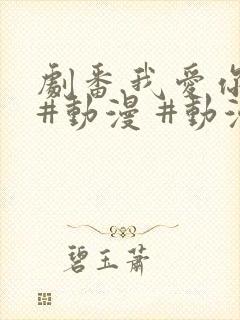 劇番,我愛你
#動漫 #動漫
碧玉蕭